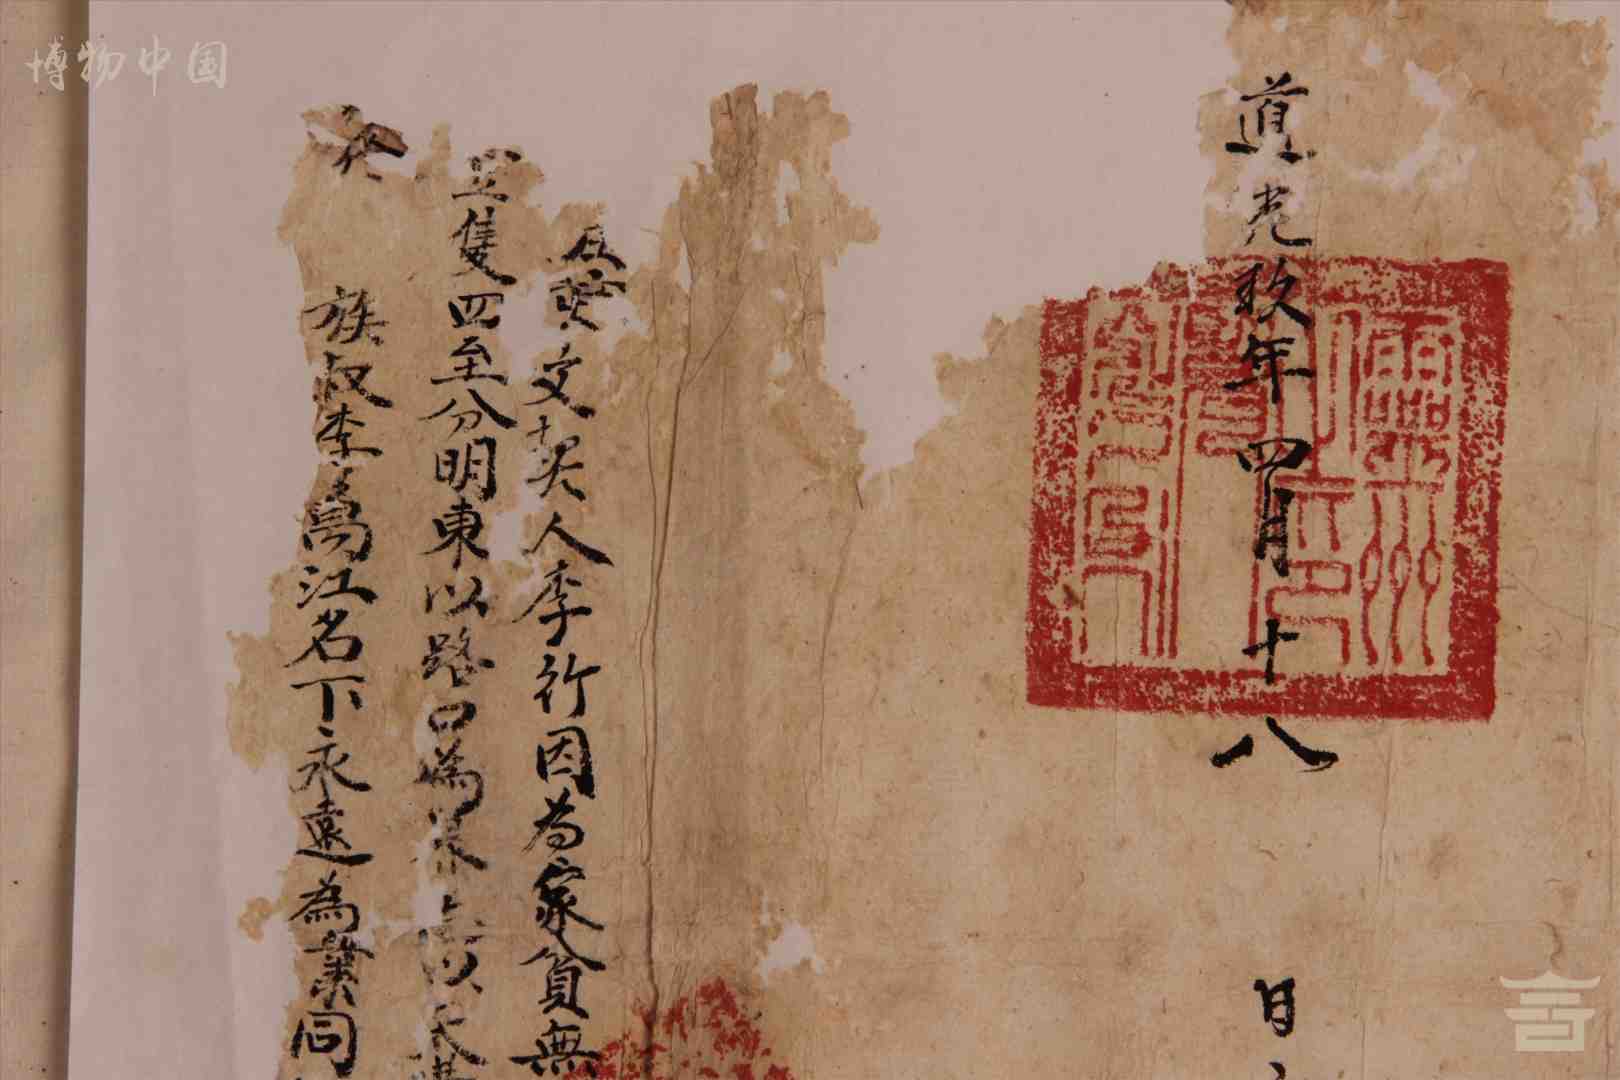 博物中国
道光玖年四月十八日
賣文契人李行因為家貧無
隻四至分明東以路口為界以天
族叔李萬江名下永遠為業同